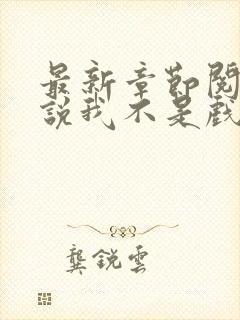 最新章節閱
說我不是戲
龔銳雲